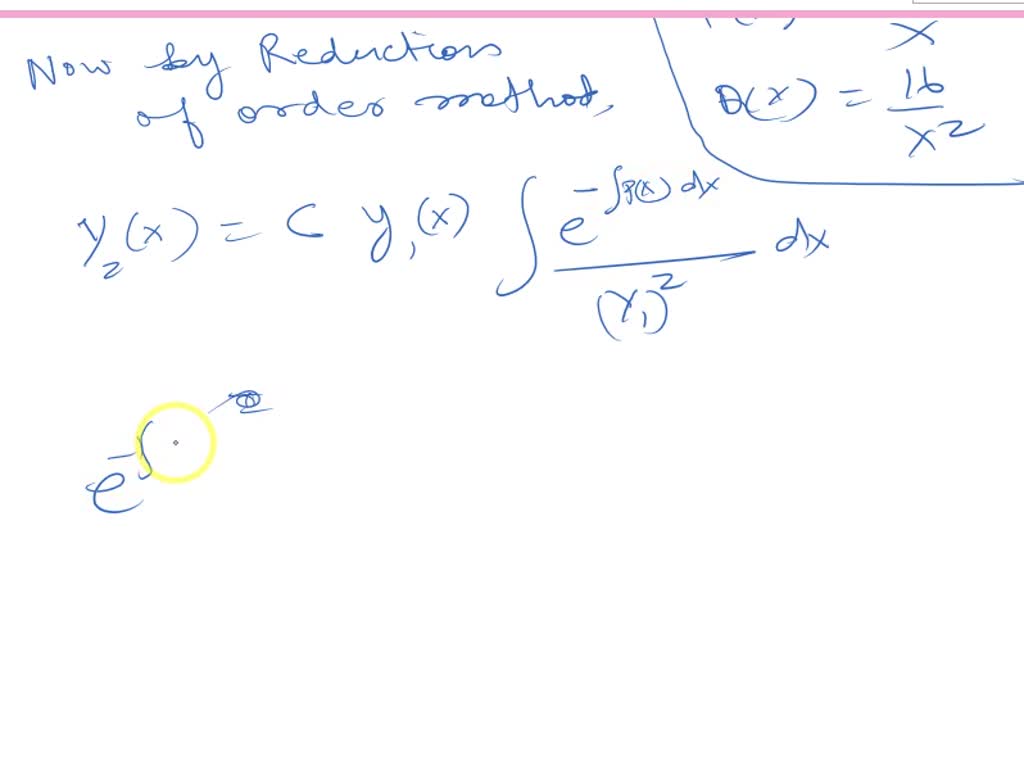 Now by Reduction
of order method,
x
Q(x) = 16/x²
y₂(x) = C y₁(x) ∫ e^(-∫p(x) dx) / (y₁)² dx
e^-∫